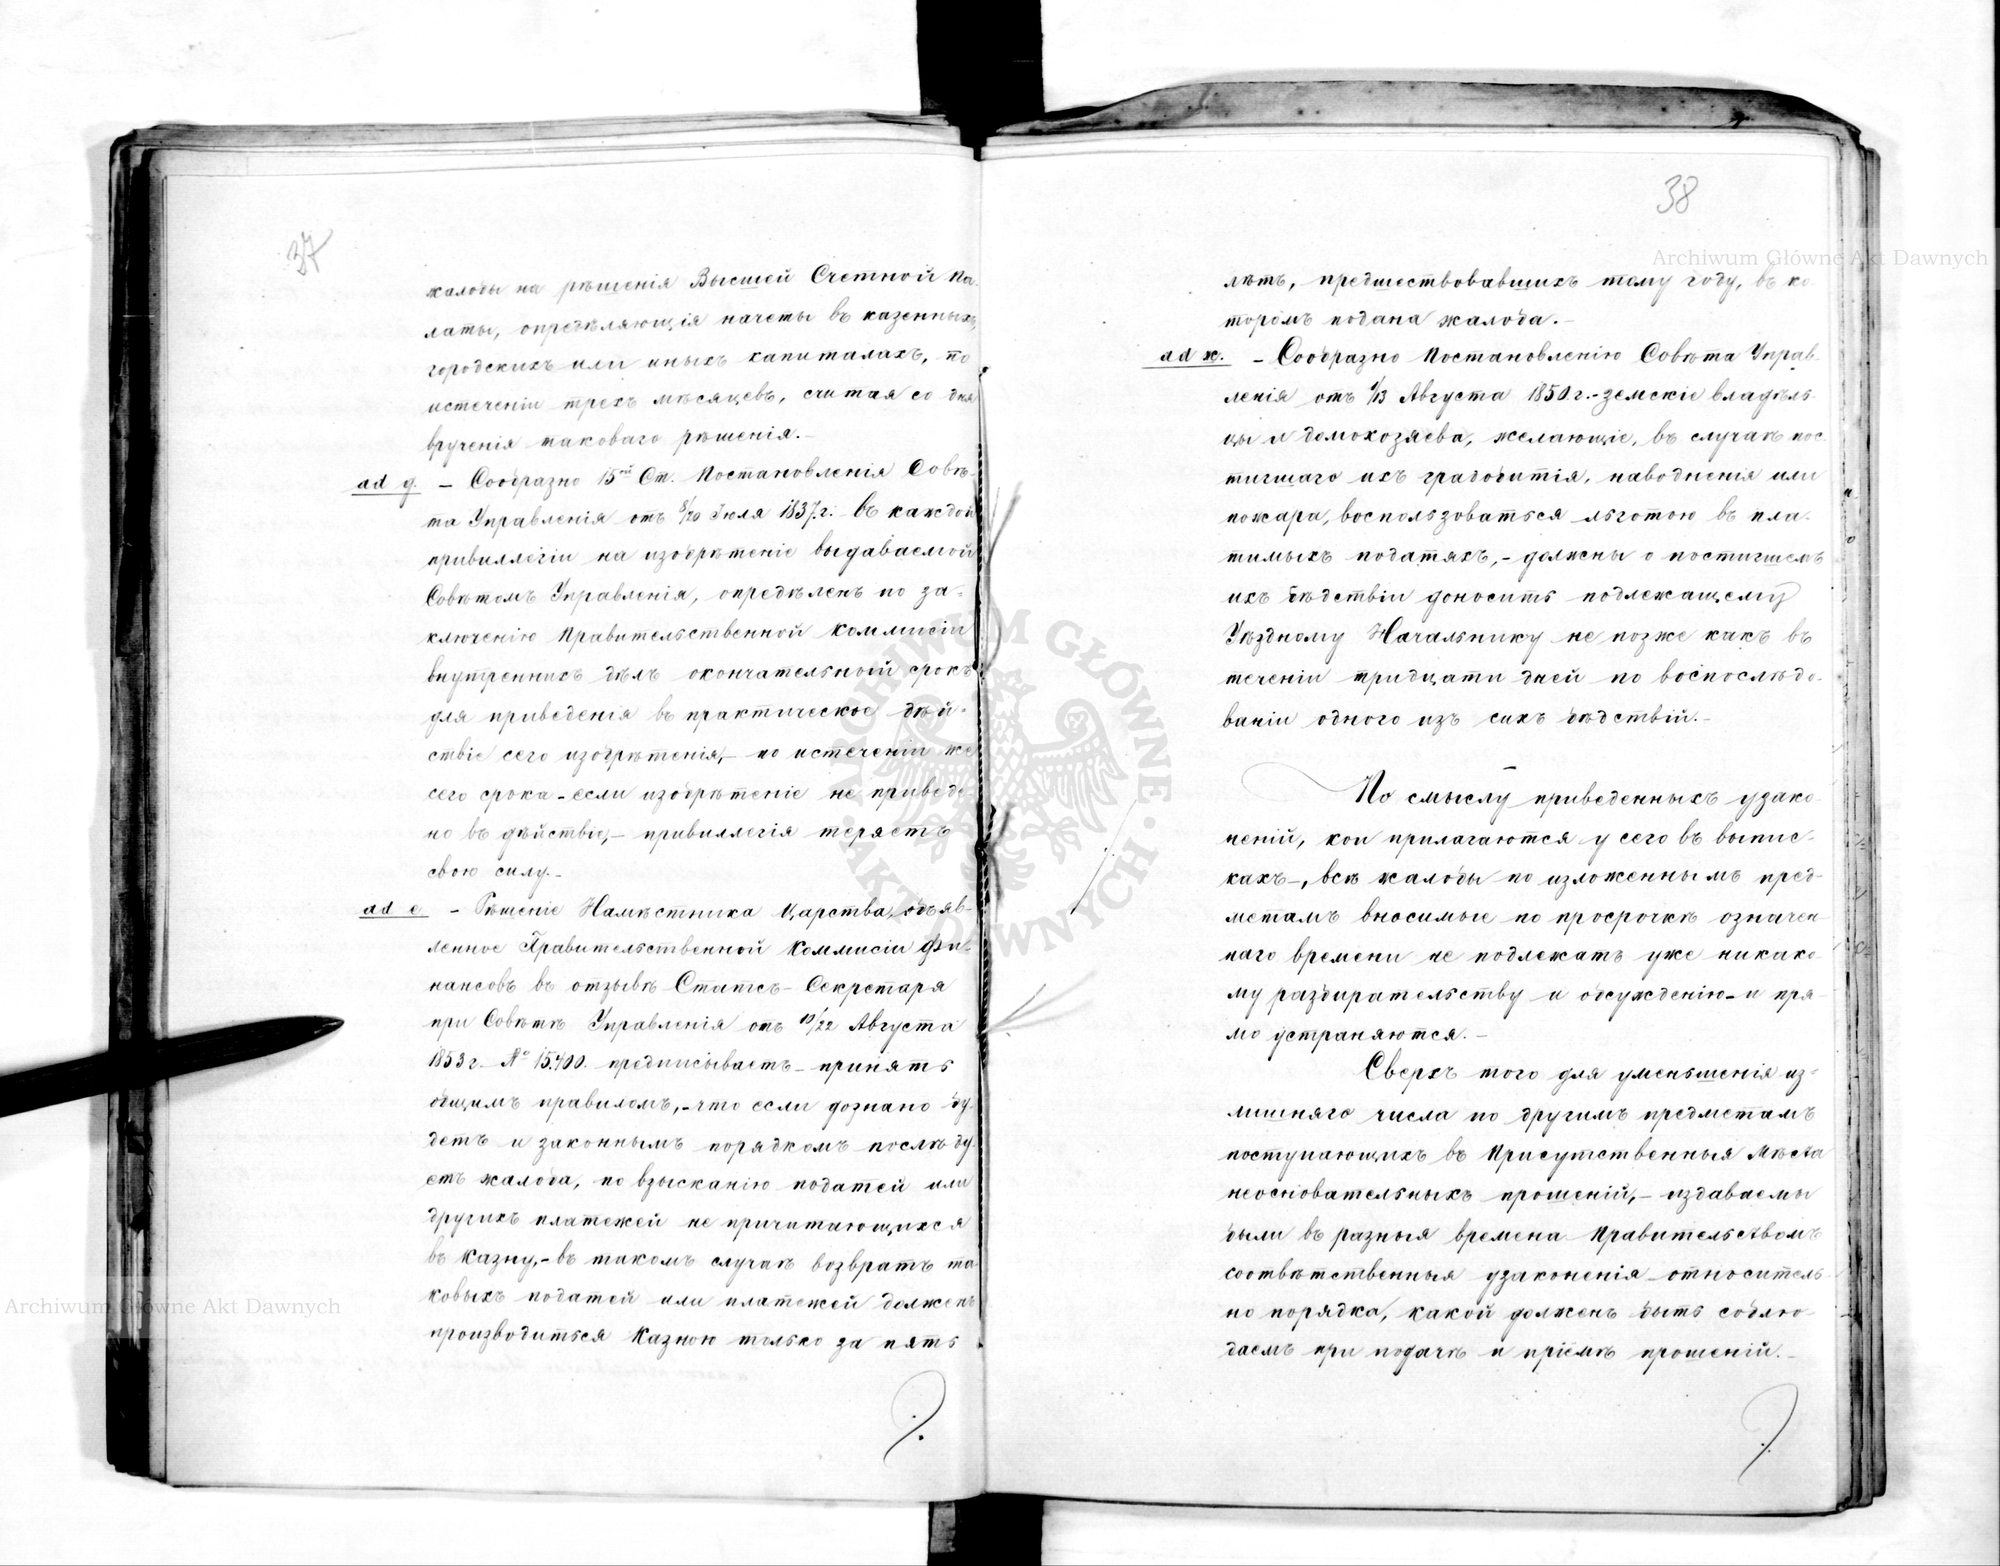 37
жалобы на рѣшенія Высшей Счетной Па-
латы, опредѣляющія начеты въ казенныхъ,
городскихъ или иныхъ капиталахъ, по
истеченіи трехъ мѣсяцевъ, считая со дня
врученія таковаго рѣшенія.-
ad g. - Сообразно 15ой Ст. Постановленія Совѣ-
та Управленія отъ 8/20 Іюля 1837 г. въ каждой
привиллегіи на изобрѣтеніе выдаваемой
Совѣтомъ Управленія, опредѣленъ по за-
ключенію Правительственной Коммисіи
внутреннихъ дѣлъ окончательный срокъ
для приведенія въ практическое дѣй-
ствіе сего изобрѣтенія,- по истеченіи же
сего срока - если изобрѣтеніе не приведе-
но въ дѣйствіе,- привиллегія теряетъ
свою силу.-
ad e - Рѣшеніе Намѣстника Царства, объяв-
ленное Правительственной Коммисіи Фи-
нансовъ въ отзывѣ Статсъ-Секретаря
при Совѣтѣ Управленія отъ 10/22 Августа
1853 г. № 15.400. предписываетъ - принять
общимъ правиломъ,- что если дознано бу-
детъ и законнымъ порядкомъ послѣду-
етъ жалоба, по взысканію податей или
другихъ платежей не причитающихся
въ казну,- въ такомъ случаѣ возвратъ та
ковыхъ податей или платежей долженъ
производиться Казною только за пять
38
лѣтъ, предшествовавшихъ тому году, въ ко-
торомъ подана жалоба.-
ad ж. - Сообразно Постановленію Совѣта Управ-
ленія отъ 1/13 Августа 1850 г.- земскіе владѣль-
цы и домохозяева, желающіе, въ случаѣ пос-
тигшаго ихъ градобитія, наводненія или
пожара, воспользоваться льготою въ пла-
тимыхъ податяхъ,- должны о постигшемъ
ихъ бѣдствіи доносить подлежащему
Уѣздному Начальнику не позже какъ въ
теченіи тридцати дней по воспослѣдо-
ваніи одного изъ сихъ бѣдствій.-
По смыслу приведенныхъ узако-
неній, кои прилагаются у сего въ выпис-
кахъ-, всѣ жалобы по изложеннымъ пред-
метамъ вносимые по просрочкѣ означен-
наго времени не подлежатъ уже никако-
му разбирательству и обсужденію - и пря-
мо устраняются.-
Сверхъ того для уменьшенія из-
лишняго числа по другимъ предметамъ
поступающихъ въ Присутственныя Мѣста
неосновательныхъ прошеній,- издаваемы
были въ разныя времена Правительствомъ
соотвѣтственныя узаконенія относитель-
но порядка, какой долженъ быть соблю-
даемъ при подачѣ и пріемѣ прошеній.-
Archiwum Główne Akt Dawnych
ARCHIWUM GŁÓWNE AKT DAWNYCH
Archiwum Główne Akt Dawnych